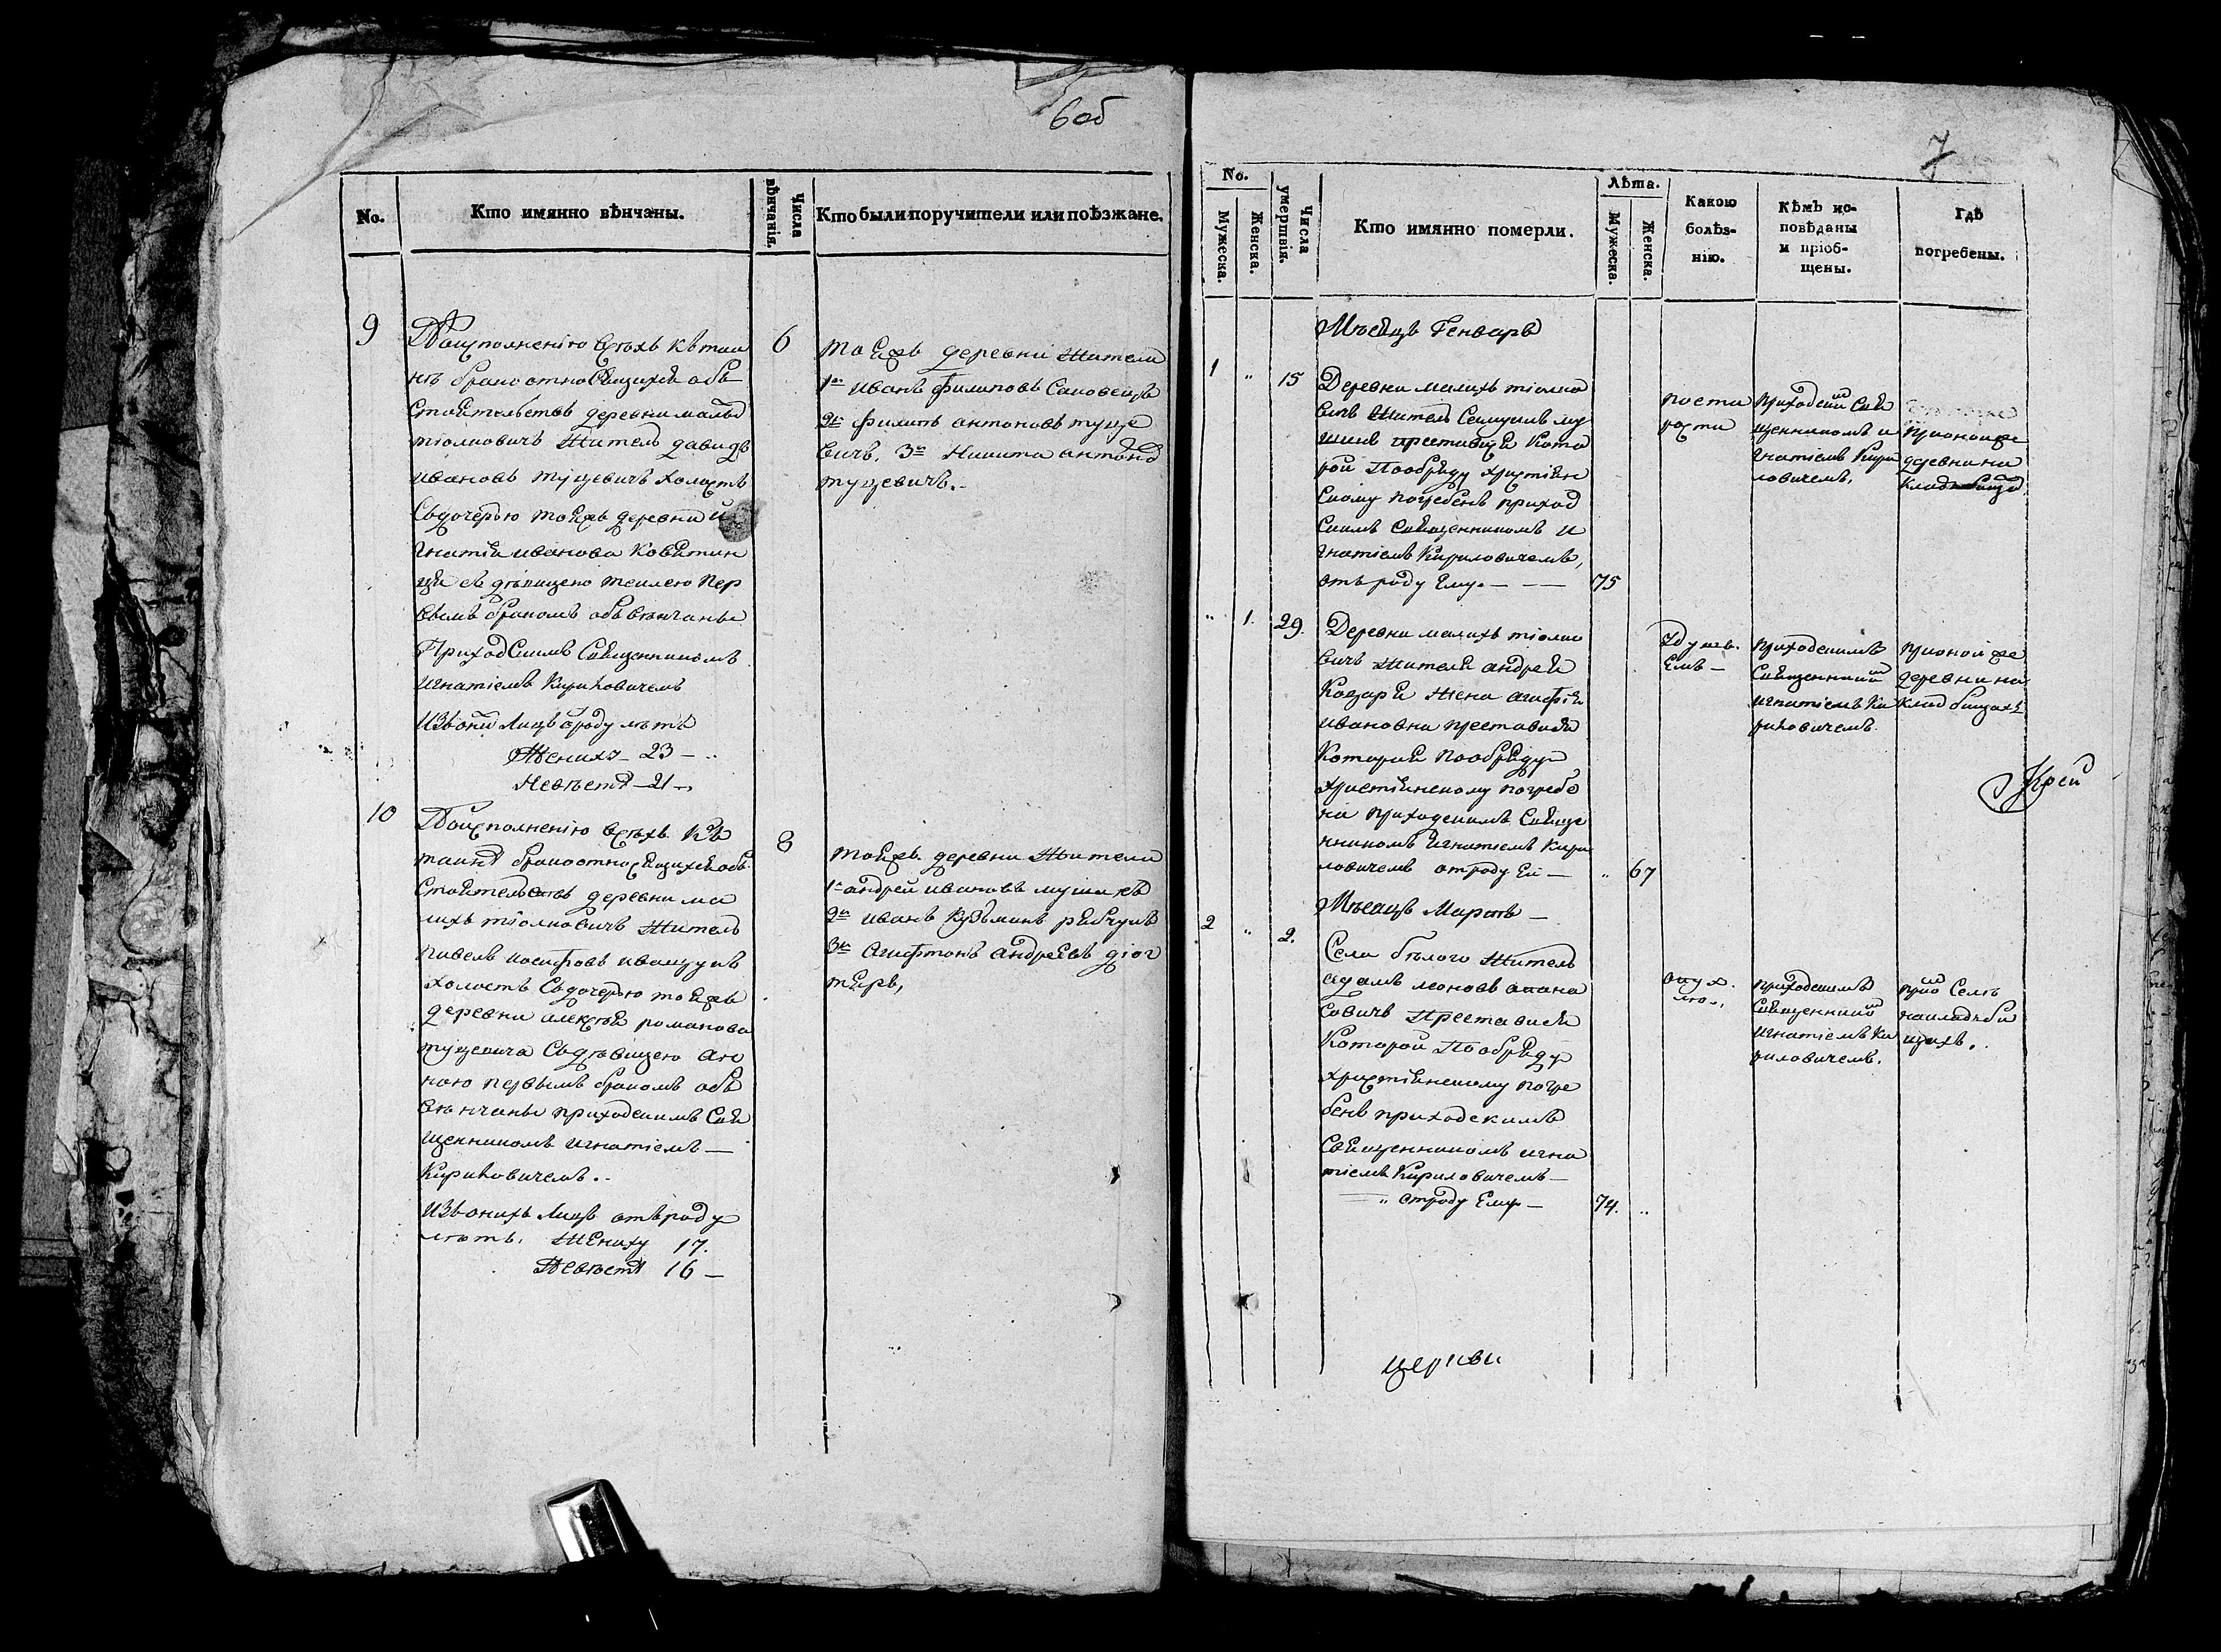 6 об
No.
Кто имянно вѣнчаны.
Числа вѣнчанія.
Кто были поручители или поѣзжане.
9
По исполненію всѣхъ къ таи
нѣ брака относящихся обѣ
стоятельствъ деревни малы
тіолковичъ житель давидъ
ивановъ туцевичъ холостъ
Съ дочерью тоя жъ деревни и
гнатія иванова
дѣвицею пер
вымъ бракомъ обвѣнчаны
Приходскимъ Священникомъ
Игнатіемъ Кириловичемъ
Изъ оныхъ лицъ отроду лѣтъ
Жениху 23 —
Невѣстѣ 21 —
6
тоя жъ деревни жители
1й иванъ филиповъ
2й филипъ антоновъ туце
вичъ, 3й Никита антоновъ
туцевичъ.
10
По исполненію всѣхъ къ
таинѣ брака относящихся об
стоятельствъ деревни ма
лыхъ тіолковичъ житель
павелъ иосифовъ
холостъ Съ дочерью тоя жъ
деревни алексѣя романова
туцевича Съ дѣвицею ан
ною первымъ бракомъ обѣ
вѣнчаны приходскимъ Свя
щенникомъ игнатіемъ —
Кириловичемъ.
Изъ оныхъ лицъ отъ роду
лѣтъ, Жениху 17.
Невѣстѣ 16 —
8
тоя жъ деревни жители
1й андрей ивановъ
2й иванъ Кузьминъ рабчукъ
3й андреевъ діог
7
No.
Мужеска.
Женска.
Числа умертвія.
Кто имянно померли.
Лѣта.
Мужеска.
Женска.
Какою болѣз-
нію.
Кѣмъ ис-
повѣданы
и пріоб-
щены.
Гдѣ
погребены.
Мѣсяцъ Генварь
1 " 15
Деревни малыхъ тіолко
вичъ житель
преставися кото
рой По обряду христіян
скому погребенъ приход
скимъ Священникомъ и
гнатіемъ Кириловичемъ,
отъ роду Ему — — — 75
приходским Свя
щенникомъ и
гнатіемъ Кири
ловичемъ.
при оной же
деревни на
кладбищѣ
" 1. 29.
Деревни малыхъ тіолко
вичъ жителя андрея
Козаря жена агафія
ивановна преставися
Которая По обряду
христіянскому погребе
на приходскимъ Священ
нникомъ игнатіемъ Кири
ловичемъ отроду Ей — " 67
приходскимъ
Священником
игнатіемъ Ки
риловичемъ
при оной же
деревни на
кладбищахъ
Мѣсяцъ Мартъ —
2 " 2.
Села бѣлого житель
адамъ леоновъ
Преставися
Которой По обряду
христіянскому погре
бенъ приходскимъ
Священникомъ игна
тіемъ Кириловичемъ —
" отроду Ему — 74. "
приходскимъ
Священником
игнатіемъ Ки
риловичемъ.
при Селѣ
на кладби
щахъ.
церкви